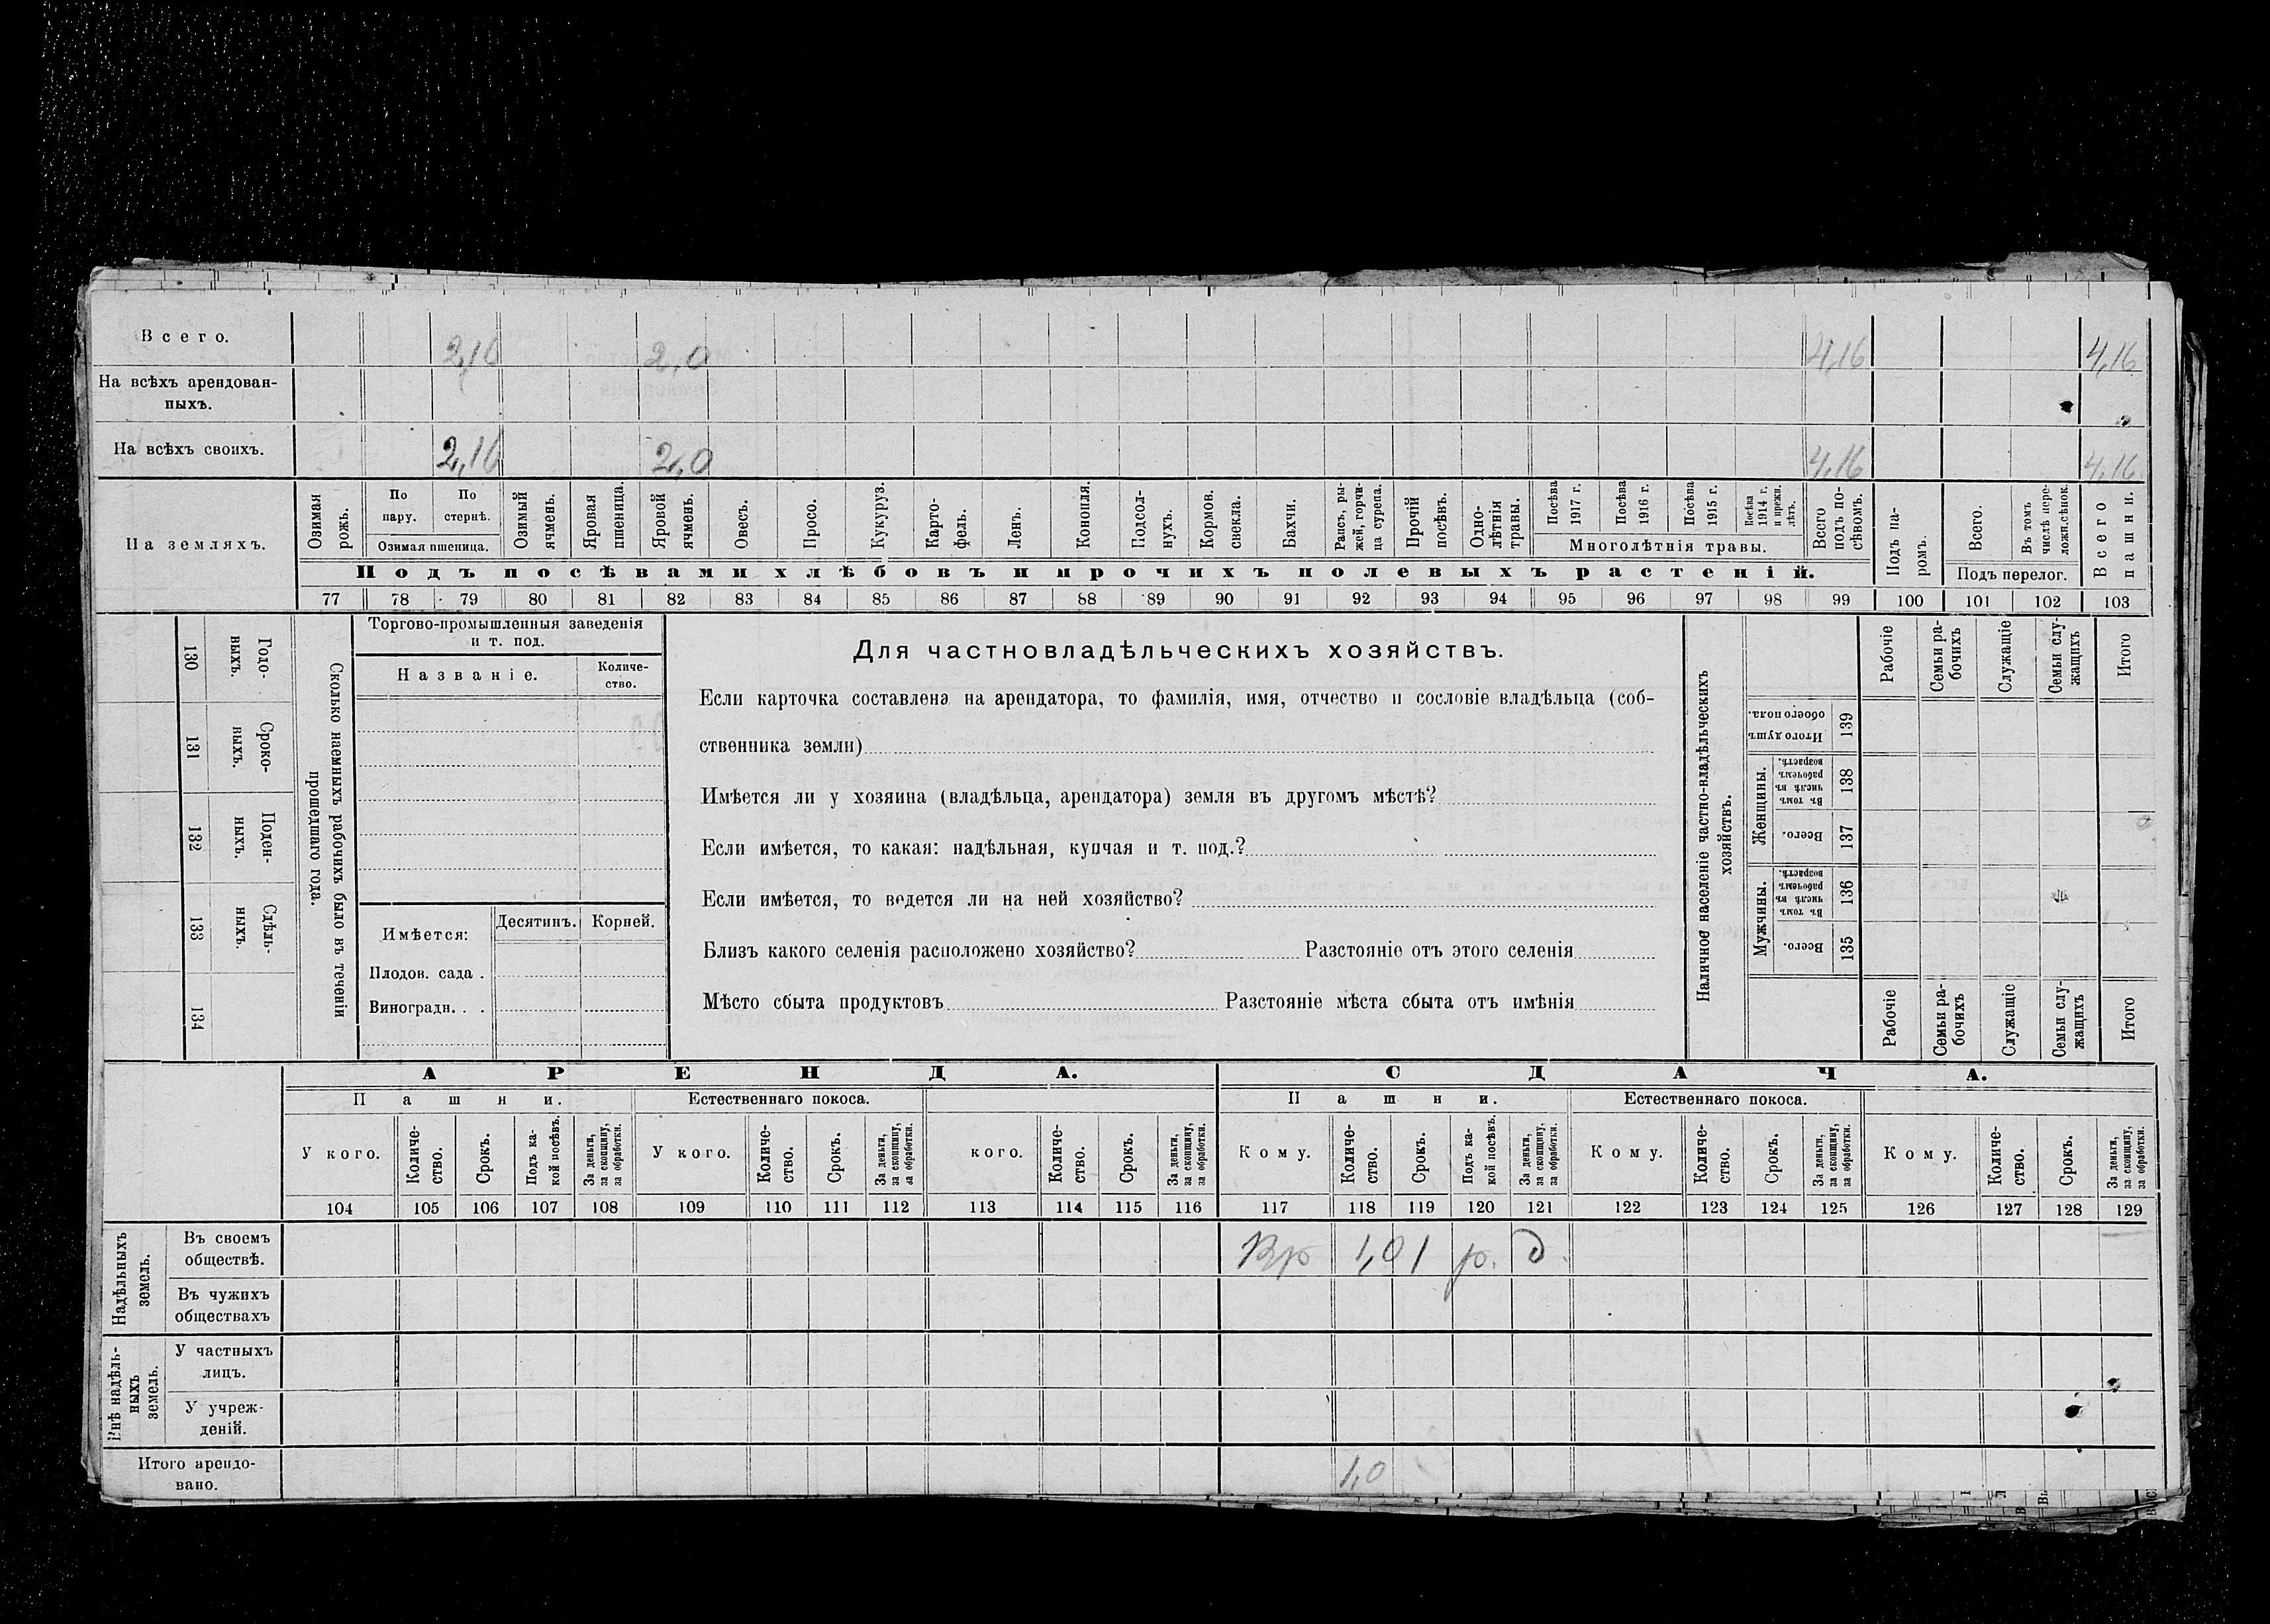 Всего. 2,16 2,0 4,16 4,16
На всѣхъ арендован-
ныхъ.
На всѣхъ своихъ. 2,16 2,0 4,16 4,16
На земляхъ.
Озимая рожь.
По пару.
По стернѣ.
Озимая пшеница.
Озимый ячмень.
Яровая пшеница.
Яровой ячмень.
Овесъ.
Просо.
Кукуруз.
Карто-
фель.
Ленъ.
Конопля.
Подсол-
нухъ.
Кормов. свекла.
Бахчи.
Рапсъ, ры-
жей, горчи-
ца сурепа.
Прочій посѣвъ.
Одно-
лѣтнія травы.
Посѣва 1917 г.
Посѣва 1916 г.
Посѣва 1915 г.
Посѣва 1914 г. и прежн. лѣтъ.
Многолѣтнія травы.
Всего подъ по-
сѣвомъ.
Подъ па-
ромъ.
Всего.
Въ томъ числѣ пере-
ложн.сѣнок.
Подъ перелог.
Всего пашни.
Подъ посѣвами хлѣбовъ и прочихъ полевыхъ растеній.
77 78 79 80 81 82 83 84 85 86 87 88 89 90 91 92 93 94 95 96 97 98 99 100 101 102 103
130 Годо-
ныхъ.
131 Сроко-
ныхъ.
132 Поден-
ныхъ.
133 Сдѣль-
ныхъ.
134
Сколько наемныхъ рабочихъ было въ теченіи
прошедшаго года.
Торгово-промышленныя заведенія
и т. под.
Названіе.
Количе-
ство.
Имѣется: Десятинъ. Корней.
Плодов. сада .
Виноградн. . .
Для частновладѣльческихъ хозяйствъ.
Если карточка составлена на арендатора, то фамилія, имя, отчество и сословіе владѣльца (соб-
ственника земли)
Имѣется ли у хозяина (владѣльца, арендатора) земля въ другомъ мѣстѣ?
Если имѣется, то какая: надѣльная, купчая и т. под.?
Если имѣется, то ведется ли на ней хозяйство?
Близъ какого селенія расположено хозяйство? Разстояніе отъ этого селенія
Мѣсто сбыта продуктовъ Разстояніе мѣста сбыта отъ имѣнія
Наличное населеніе частно-владѣльческихъ
хозяйствъ.
Рабочіе
Семьи ра-
бочихъ
Служащіе
Семьи слу-
жащихъ
Итого
Итого душ
обоего пола.
139
Женщины.
Въ томъ числѣ въ рабочемъ возрастѣ.
138
Всего.
137
Мужчины.
Въ томъ числѣ въ рабочемъ возрастѣ.
136
Всего.
135
Рабочіе
Семьи ра-
бочихъ
Служащіе
Семьи слу-
жащихъ
Итого
АРЕНДА. СДАЧА.
Пашни. Естественнаго покоса. Пашни. Естественнаго покоса.
У кого.
Количе-
ство.
Срокъ.
Подъ ка-
кой посѣвъ.
За деньги,
за скопщину,
за обработки.
У кого.
Количе-
ство.
Срокъ.
За деньги,
за скопщину,
за обработки.
кого.
Количе-
ство.
Срокъ.
За деньги,
за скопщину,
за обработки.
Кому.
Количе-
ство.
Срокъ.
Подъ ка-
кой посѣвъ.
За деньги,
за скопщину,
за обработки.
Кому.
Количе-
ство.
Срокъ.
За деньги,
за скопщину,
за обработки.
Кому.
Количе-
ство.
Срокъ.
За деньги,
за скопщину,
за обработки.
104 105 106 107 108 109 110 111 112 113 114 115 116 117 118 119 120 121 122 123 124 125 126 127 128 129
Надѣльныхъ
земель.
Въ своемъ
обществѣ.
1,0 1 р. д.
Въ чужихъ
обществахъ
Внѣ надѣль-
ныхъ
земель.
У частныхъ
лицъ.
У учреж-
деній.
Итого арендо-
вано.
1,0